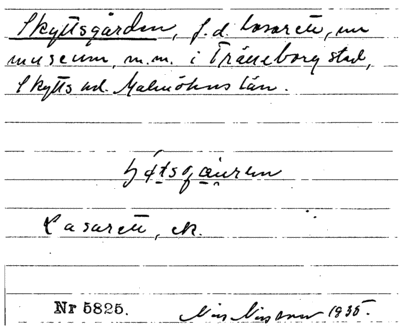 Skyttsgården, f.d. lasarett, nu
museum, m.m. i Trälleborg stad,
Skytts hd. Malmöhus län.
Lasarett, ek.
Nr 5825.
Nils Nilsson 1935.